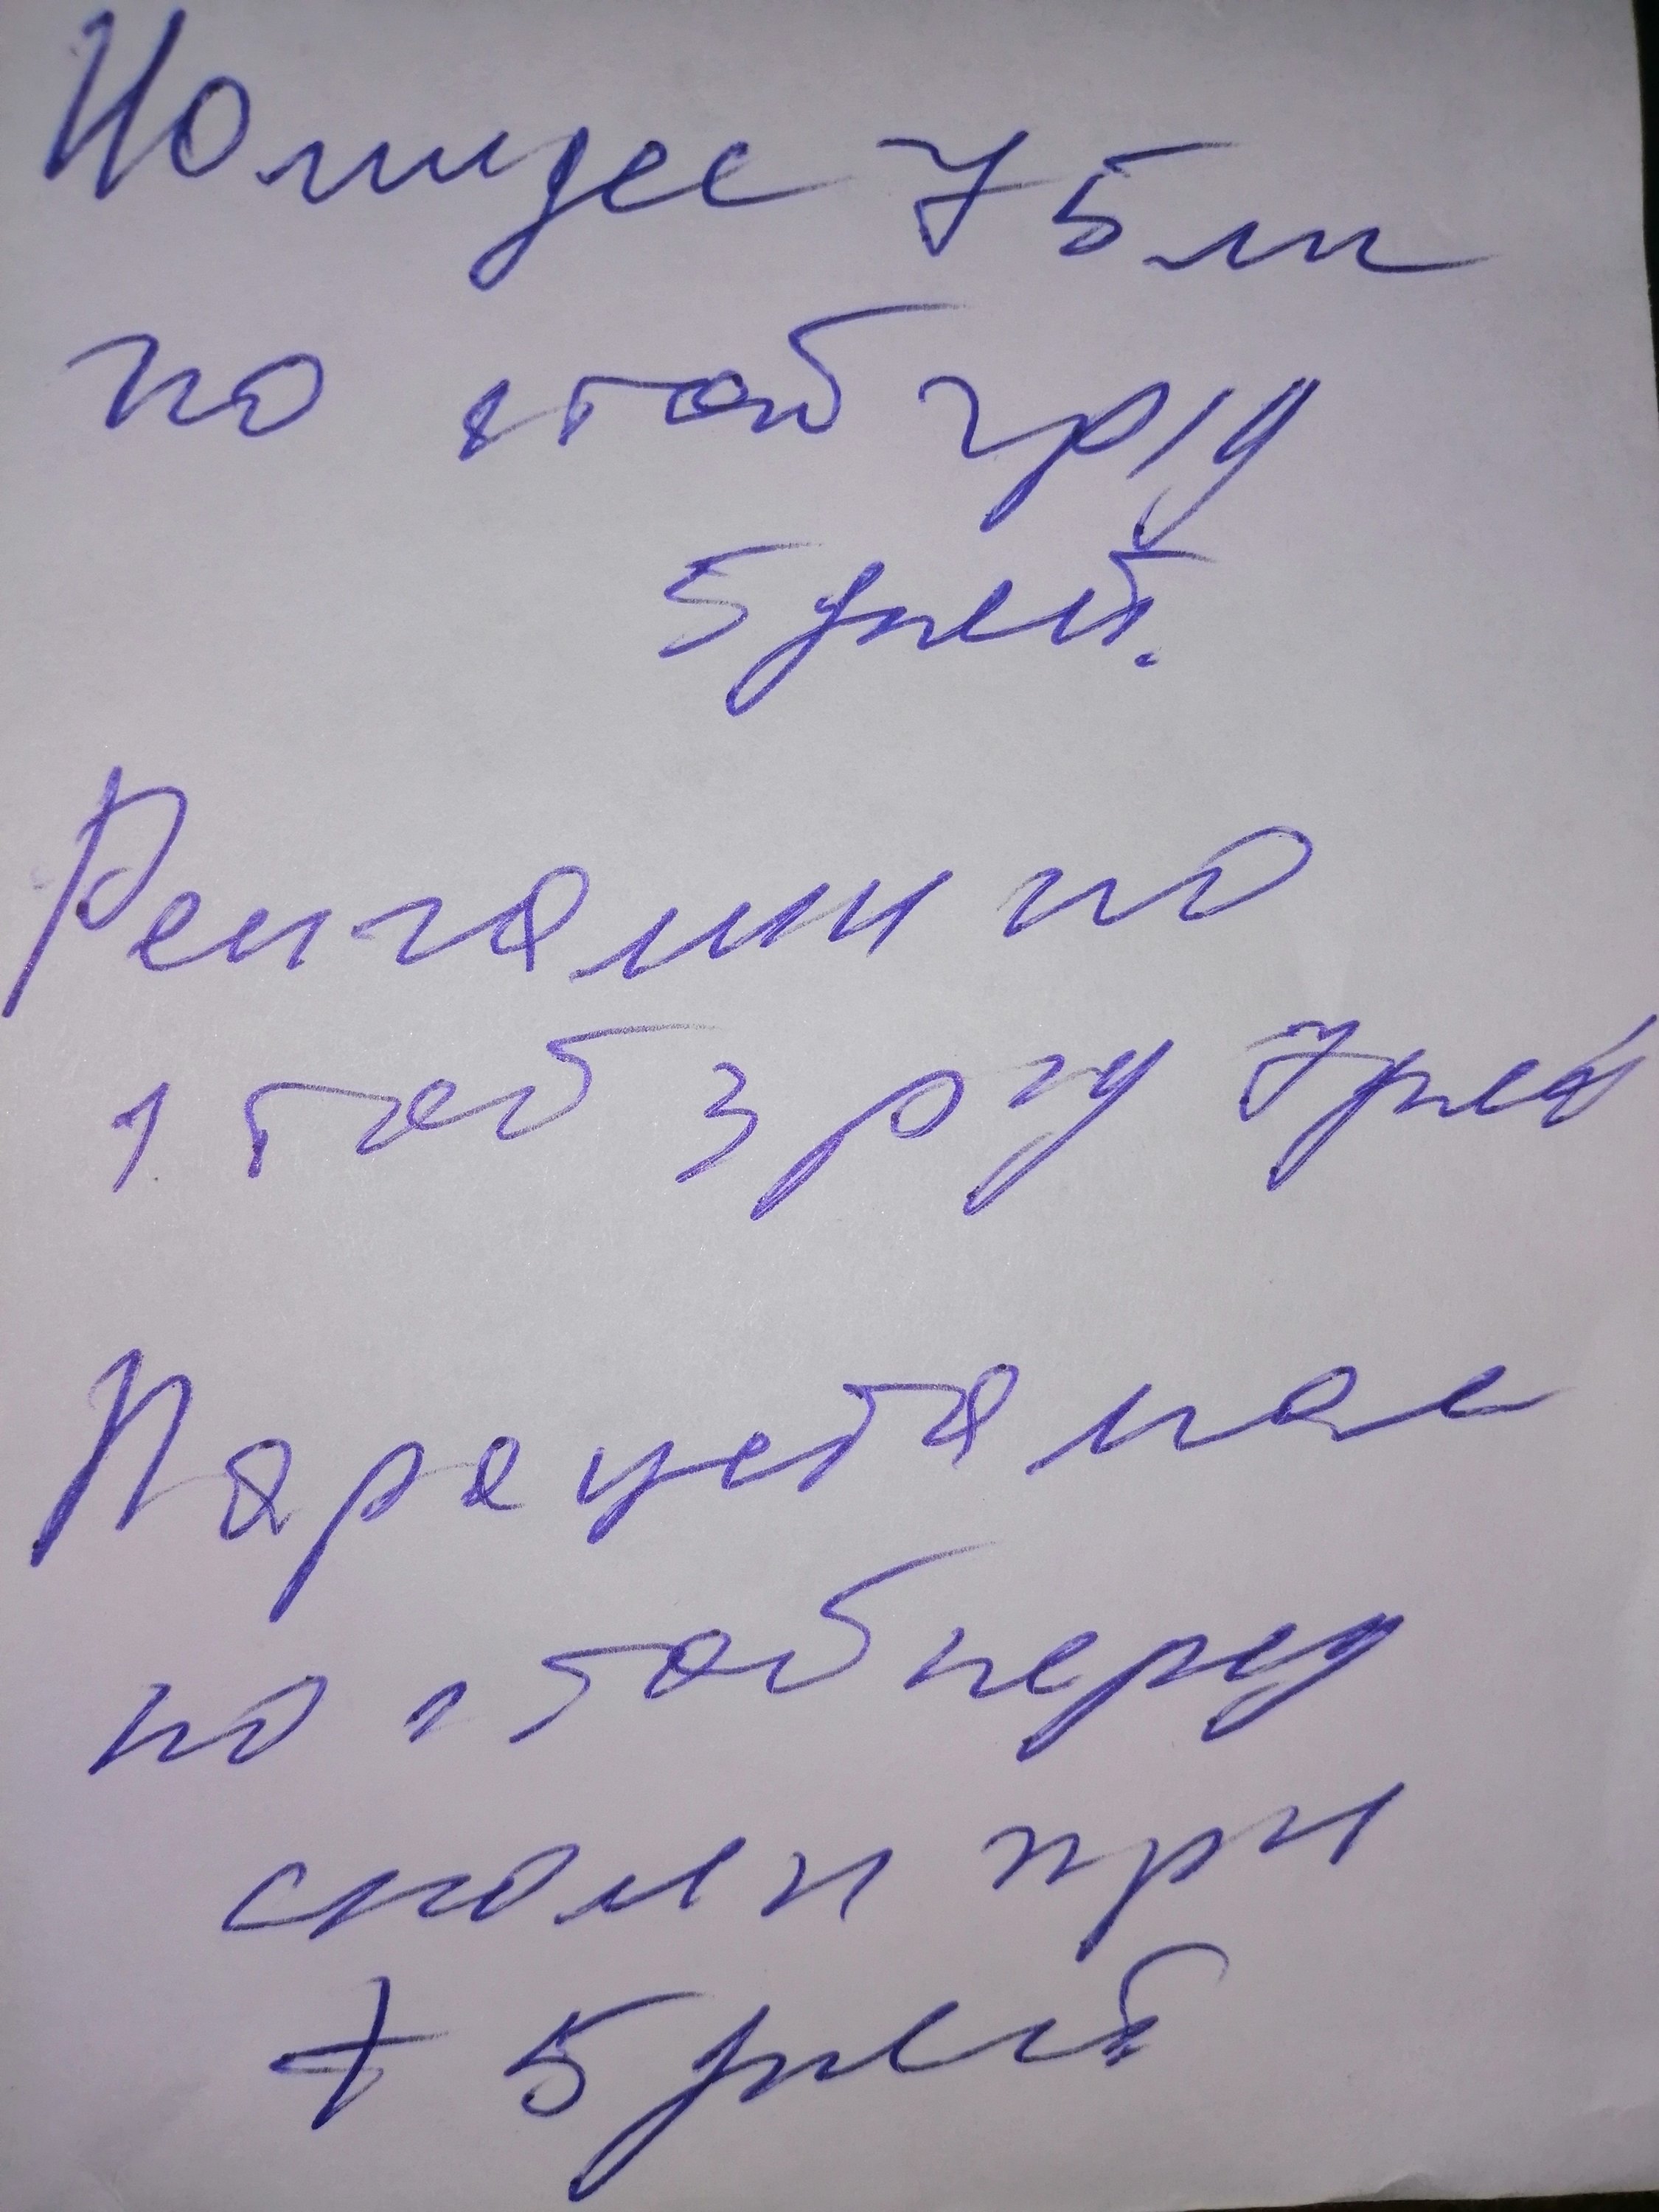 Номидес 75мг
по 1 таб 2р/д
5 дней.
Ренгалин по
1 таб 3 р/д 7 дней
Парацетамол
по 1 таб перед
сном при
+ 5 дней